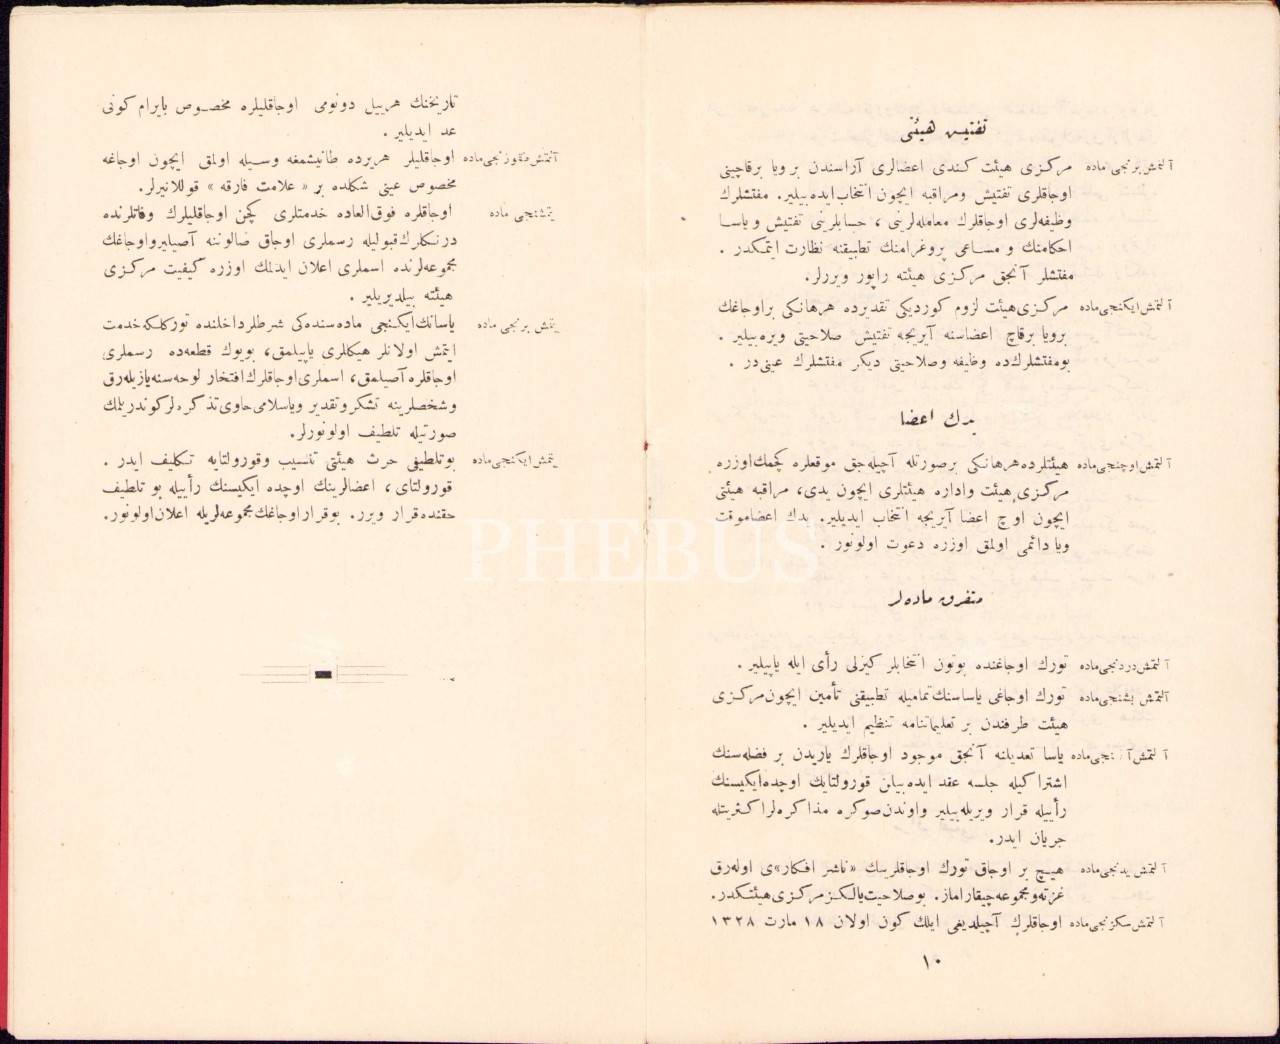 تفتیش هیئتی
آلتمش برنجی ماده  مرکزی هیئت کندی اعضالری آراسندن بر ویا برقاچینی
اوجاقلری تفتیش ومراقبه ایچون انتخاب ایده بیلیر. مفتشلرك
وظیفه‌لری اوجاقلرك معامله‌لرینی ، حسابلرینی تفتیش و یاسا
احکامنك و مساعی پروغرامنك تطبیقنه نظارت ایتمکدر .
مفتشلر آنجق مرکزی هیئته راپور ویررلر.
آلتمش ایکنجی ماده  مرکزی هیئت لزوم کوردیکی تقدیرده هرهانکی براوجاغك
برویا برقاچ اعضاسنه آیریجه تفتیش صلاحیتی ویره بیلیر .
بومفتشلرك‌ده وظیفه وصلاحیتی دیکر مفتشلرك عینی در .
یدك اعضا
آلتمش اوچنجی ماده  هیئتلرده هرهانکی برصورتله آچیله‌جق موقعلره کچمك اوزره
مرکزی هیئت واداره هیئتلری ایچون یدی، مراقبه هیئتی
ایچون اوچ اعضا آیریجه انتخاب ایدیلیر. یدك اعضاموقت
ویا دائمی اولمق اوزره دعوت اولونور .
متفرق ماده‌لر
آلتمش دردنجی ماده  تورك اوجاغنده بوتون انتخابلر کیزلی رأی ایله یاپیلیر.
آلتمش بشنجی ماده  تورك اوجاغی یاساسنك تمامیله تطبیقنی تأمین ایچون مرکزی
هیئت طرفندن بر تعلیماتنامه تنظیم ایدیلیر .
آلتمش آلتنجی ماده  یاسا تعدیلنه آنجق موجود اوجاقلرك یاریدن بر فضله‌سنك
اشتراکیله جلسه عقد ایده بیلن قورولتایك اوچده ایکیسنك
رأییله قرار ویریله‌بیلیر واوندن صوکره مذاکره‌لر اکثریتله
جریان ایدر.
آلتمش یدنجی ماده  هیچ بر اوجاق تورك اوجاقلرینك «ناشر افکار»ی اوله‌رق
غزته ومجموعه چیقاراماز. بوصلاحیت یالکز مرکزی هیئتکدر.
آلتمش سکزنجی ماده  اوجاقلرك آچیلدیغی ایلك کون اولان ١٨ مارت ١٣٢٨
١٠
تاریخنك هرییل دونومی اوجاقلیلره مخصوص بایرام کونی
عد ایدیلیر .
آلتمش طقوزنجی ماده  اوجاقلیلر هریرده طانیشمغه وسیله اولمق ایچون اوجاغه
مخصوص عینی شکلده بر « علامت فارقه » قوللانیرلر.
یتمشنجی ماده  اوجاقلره فوق العاده خدمتلری کچن اوجاقلیلرك وفاتلرنده
درنکلرك قبولیله رسملری اوجاق صالوننه آصیلیر واوجاغك
مجموعه‌لرنده اسملری اعلان ایدلمك اوزره کیفیت مرکزی
هیئته بیلدیریلیر .
یتمش برنجی ماده  یاسانك ایکنجی ماده‌سنده‌کی شرطلر داخلنده تورکلکه خدمت
ایتمش اولانلر هیکللری یاپیلمق، بویوك قطعه‌ده رسملری
اوجاقلره آصیلمق، اسملری اوجاقلرك افتخار لوحه‌سنه یازیله‌رق
وشخصلرینه تشکر وتقدیر ویاسلامی حاوی تذکره‌لر کوندریلمك
صورتیله تلطیف اولونورلر.
یتمش ایکنجی ماده  بوتلطیفی حرث هیئتی تنسیب وقورولتایه تکلیف ایدر .
قورولتای، اعضالرینك اوچده ایکیسنك رأییله بو تلطیف
حقنده قرار ویرر. بوقرار اوجاغك مجموعه‌لریله اعلان اولونور.
PHEBUS